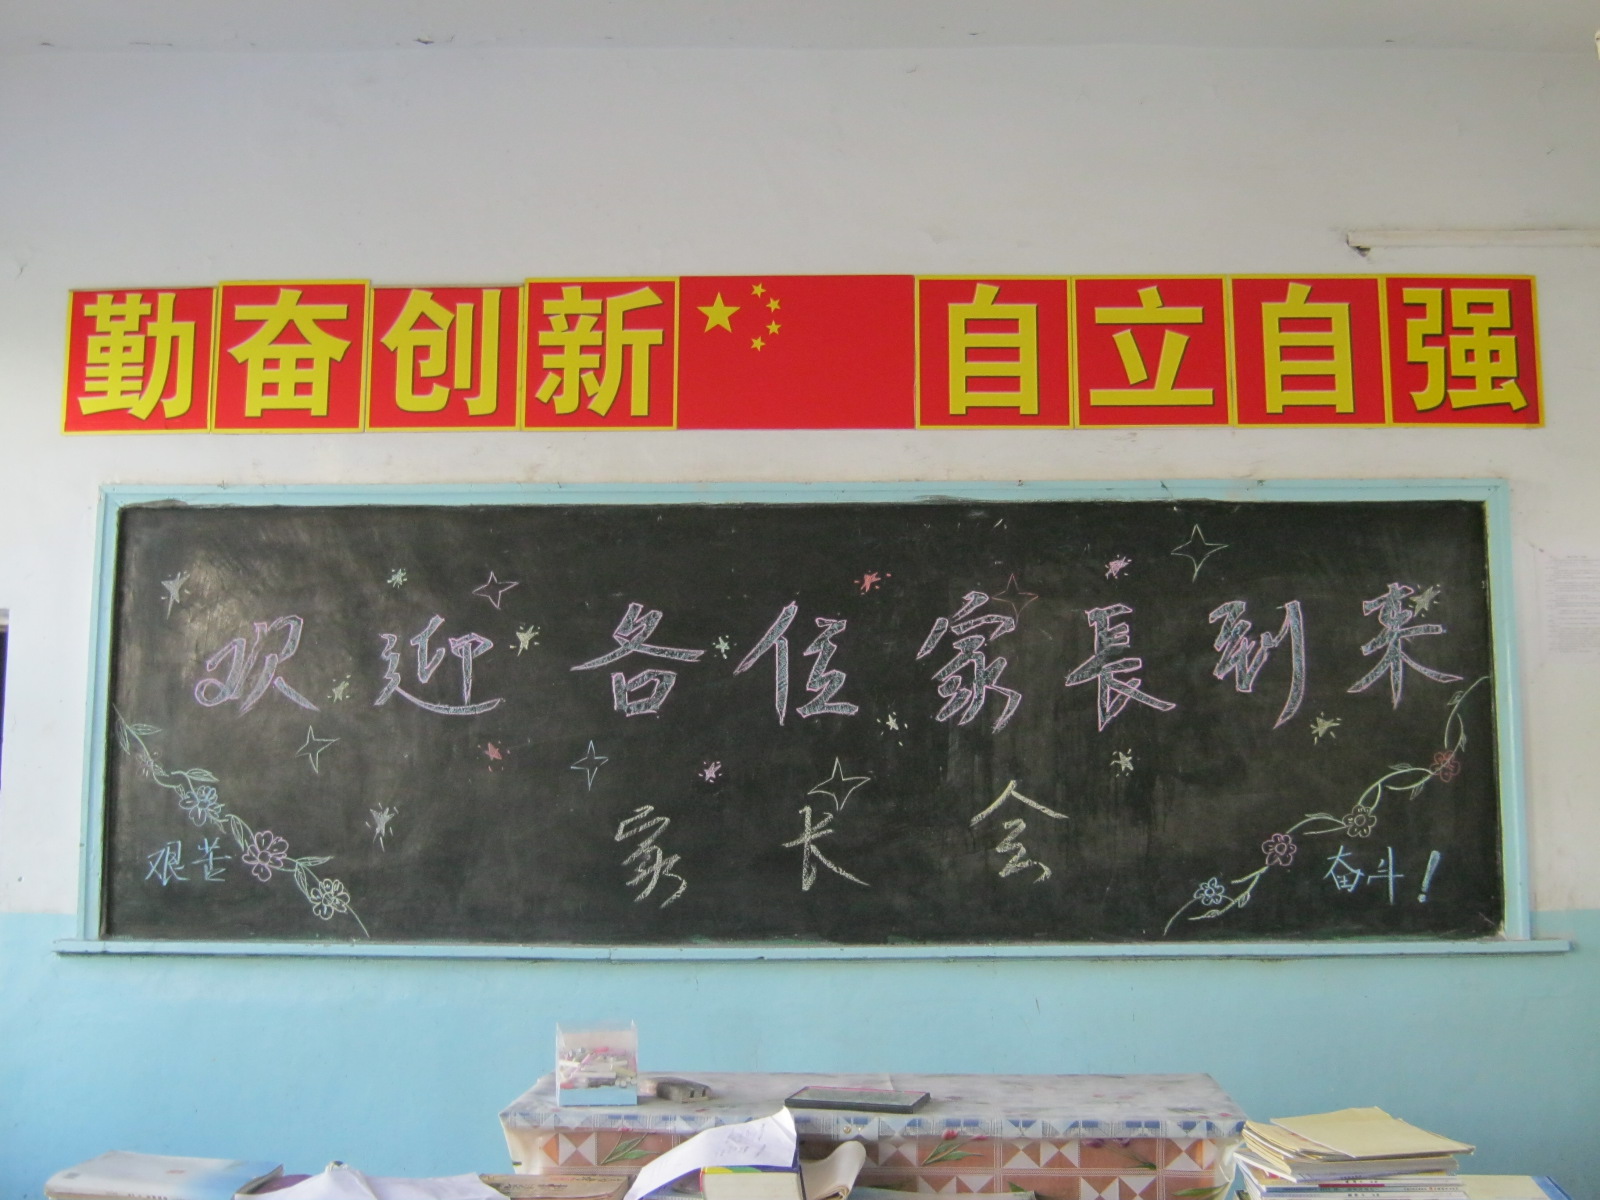 勤奋创新 自立自强
欢迎各位家長到来
家长会
艰苦 奋斗!